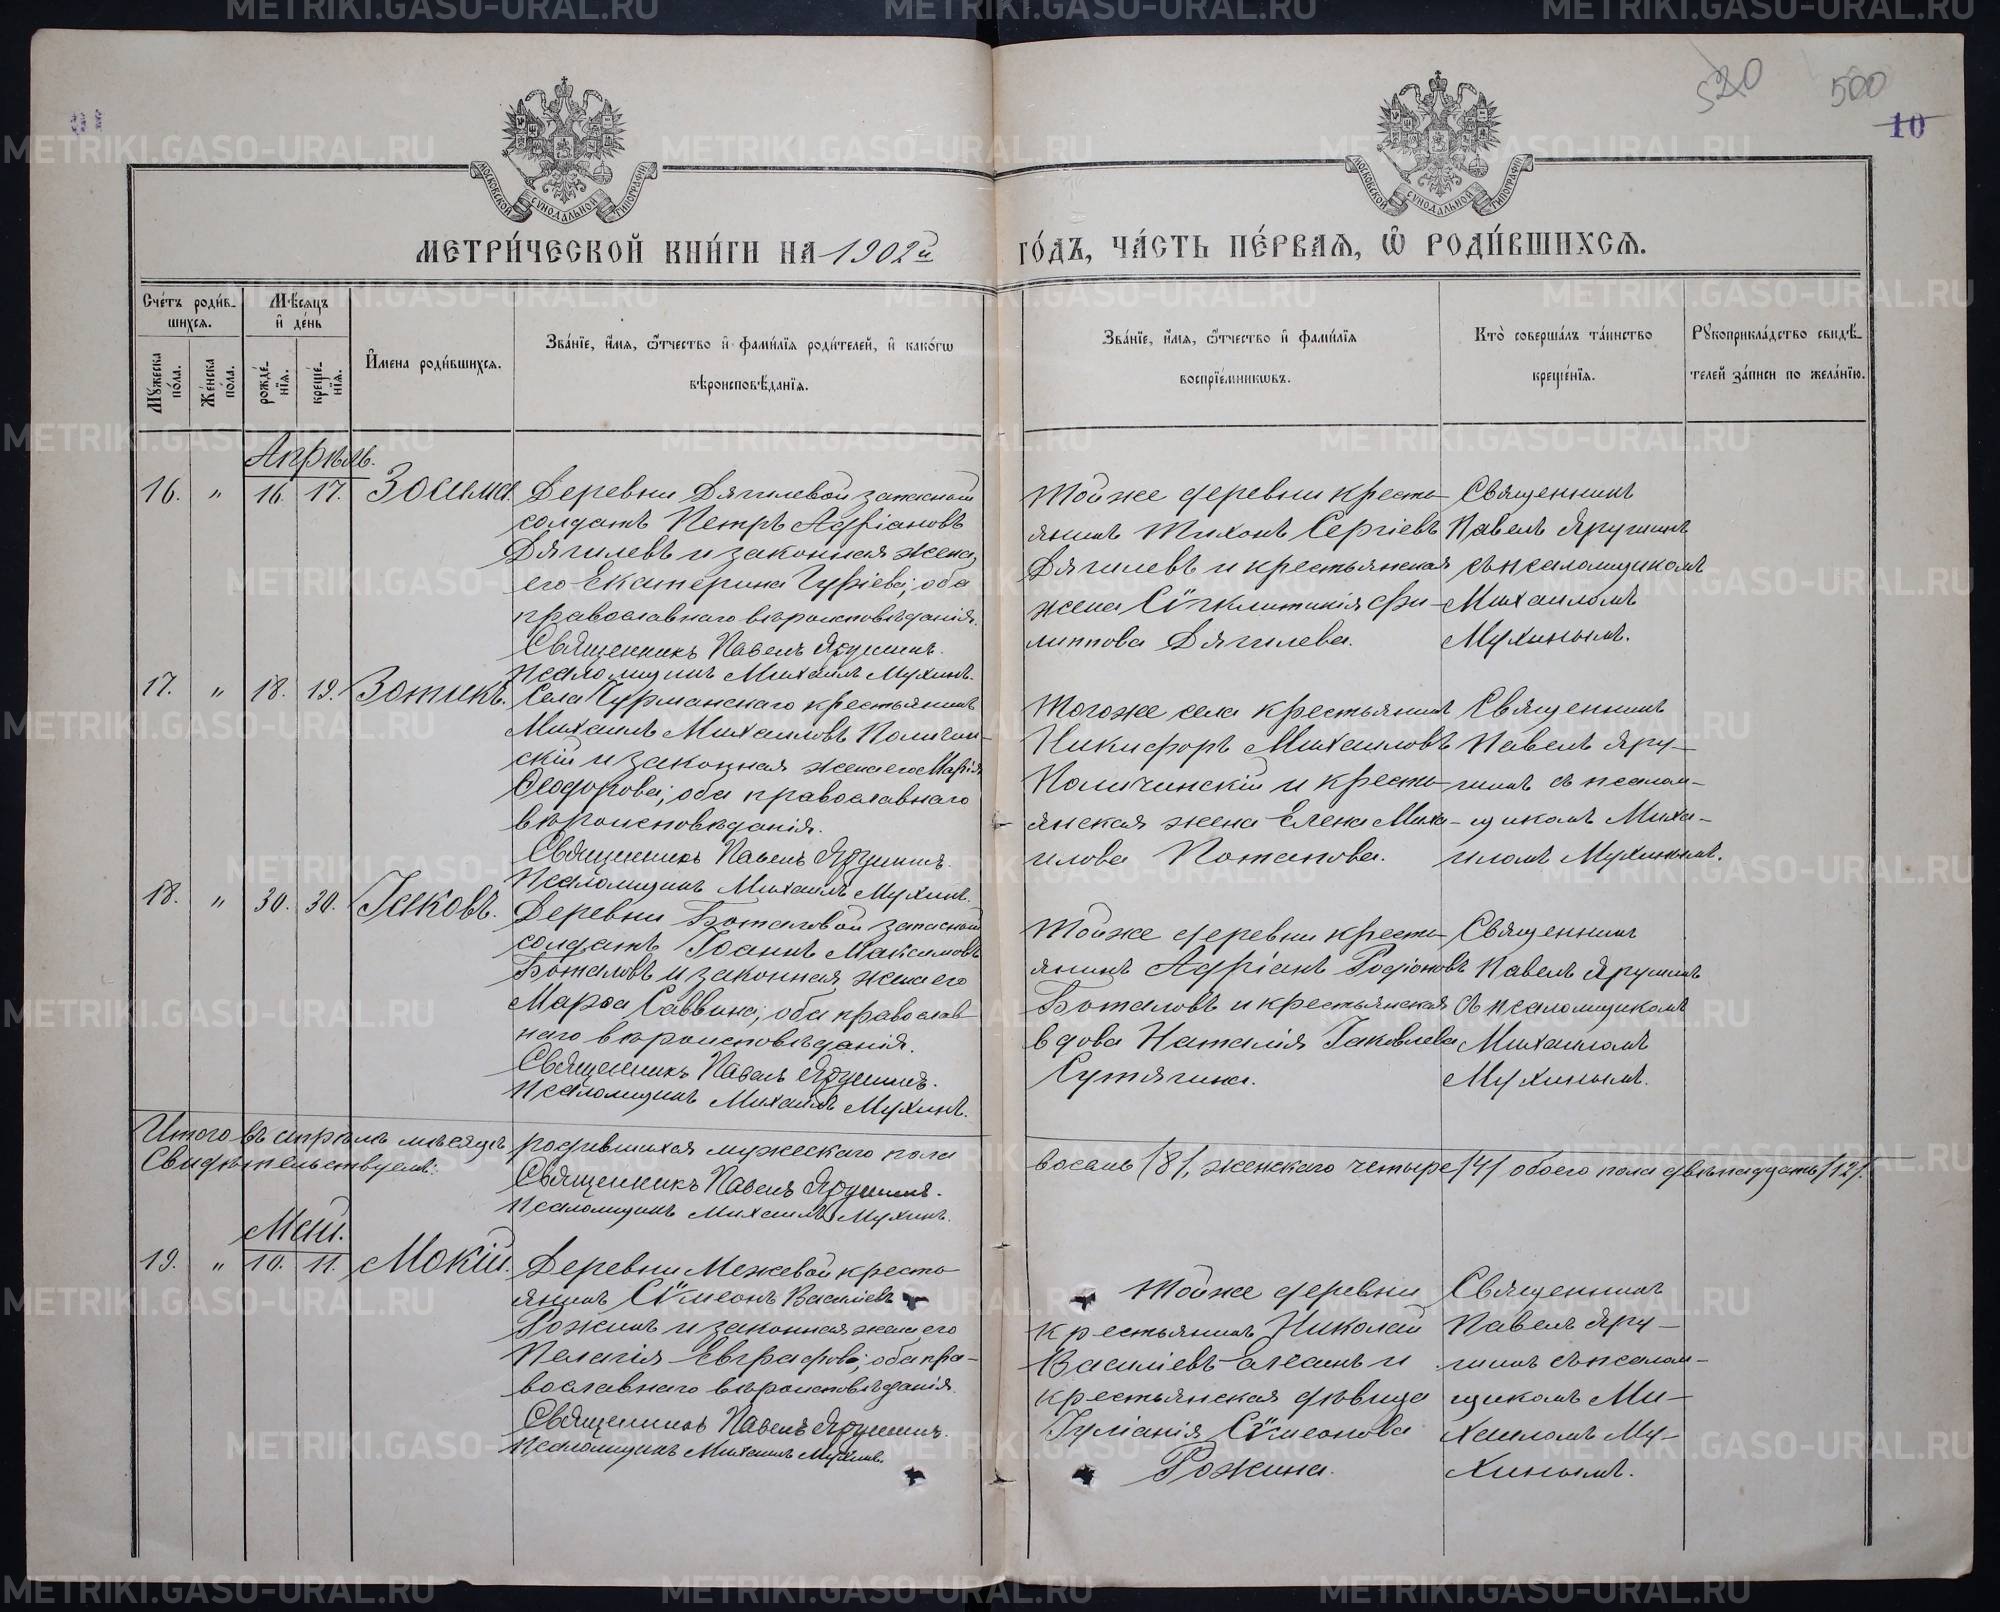 520
500
10
МОСКОВСКОЙ СѴНОДАЛЬНОЙ ТИПОГРАФІИ
МОСКОВСКОЙ СѴНОДАЛЬНОЙ ТИПОГРАФІИ
МЕТРИ́ЧЕСКОЙ КНИ́ГИ НА 1902й
ГО́ДЪ, ЧА́СТЬ ПЕ́РВАѦ, Ѽ РОДИ́ВШИХСѦ.
Сче́тъ роди́в-
шихсѧ.
Мѣ́сѧцъ
и҆ де́нь
Мꙋ́жеска
по́ла.
Же́нска
по́ла.
рожде́-
нїѧ.
креще́-
нїѧ.
И҆мена роди́вшихсѧ.
Зва́нїе, и҆́мѧ, ѻ҆́тчество и҆ фами́лїѧ роди́телей, и҆ како́гѡ
вѣроисповѣ́данїѧ.
Зва́нїе, и҆́мѧ, ѻ҆́тчество и҆ фами́лїѧ
воспрїе́мникѡвъ.
Кто̀ соверша́лъ та́инство
креще́нїѧ.
Рꙋкоприкла́дство свидѣ́-
телей за́писи по жела́нїю.
Апрѣль.
16. " 16. 17. Зосима.
Деревни Дягилевой запасный
солдатъ Петръ Адріановъ
Дягилевъ и законная жена
его Екатерина Гуріева; оба
православнаго вѣроисповѣданія.
Священникъ Павелъ Ярушинъ.
Псаломщикъ Михаилъ Мухинъ.
Тойже деревни кресть-
янинъ Тихонъ Сергіевъ
Дягилевъ и крестьянская
жена Сѵнклитикія Фи-
липпова Дягилева.
Священникъ
Павелъ Ярушинъ
съ псаломщикомъ
Михаиломъ
Мухинымъ.
17. " 18. 19. Зотикъ.
Села Чурманскаго крестьянинъ
Михаилъ Михаиловъ Поличин-
скій и законная жена его Марія
Ѳеодорова; оба православнаго
вѣроисповѣданія.
Священникъ Павелъ Ярушинъ.
Псаломщикъ Михаилъ Мухинъ.
Тогоже села крестьянинъ
Никифоръ Михаиловъ
Поличинскій и кресть-
янская жена Елена Миха-
илова Потапова.
Священникъ
Павелъ Яру-
шинъ съ псалом-
щикомъ Миха-
иломъ Мухинымъ.
18. " 30. 30. Іаковъ.
Деревни Боталовой запасный
солдатъ Іоаннъ Максимовъ
Боталовъ и законная жена его
Марѳа Саввина; оба православ-
наго вѣроисповѣданія.
Священникъ Павелъ Ярушинъ.
Псаломщикъ Михаилъ Мухинъ.
Тойже деревни кресть-
янинъ Адріанъ Родіоновъ
Боталовъ и крестьянская
вдова Наталія Іаковлева
Сутягина.
Священникъ
Павелъ Ярушинъ
съ псаломщикомъ
Михаиломъ
Мухинымъ.
Итого въ апрѣлѣ мѣсяцѣ родившихся мужескаго пола
восемь /8/, женскаго четыре /4/ обоего пола двѣнадцать /12/.
Свидѣтельствуемъ:
Священникъ Павелъ Ярушинъ.
Псаломщикъ Михаилъ Мухинъ.
Май.
19. " 10. 11. Мокій.
Деревни Межевой кресть-
янинъ Сѵмеонъ Василіевъ
Рожинъ и законная жена его
Пелагія Евграфова; оба пра-
вославнаго вѣроисповѣданія.
Священникъ Павелъ Ярушинъ.
Псаломщикъ Михаилъ Мухинъ.
Тойже деревни
крестьянинъ Николай
Василіевъ и
крестьянская дѣвица
Іуліанія Сѵмеонова
Рожина.
Священникъ
Павелъ Яру-
шинъ съ псалом-
щикомъ Ми-
хаиломъ Му-
хинымъ.
METRIKI.GASO-URAL.RU